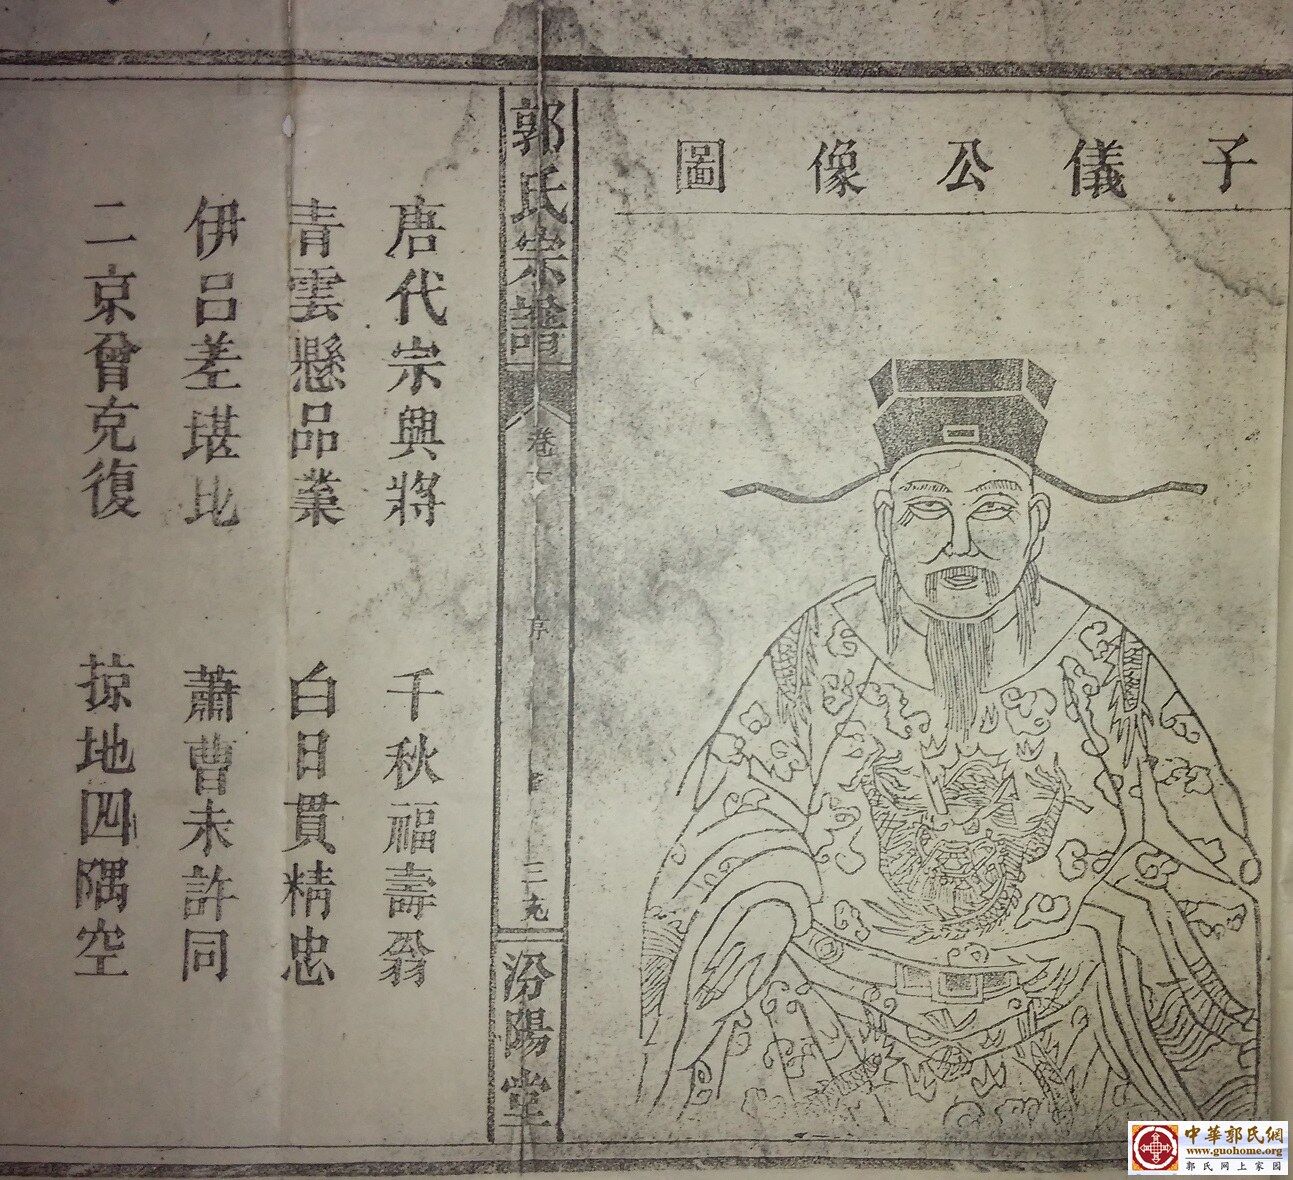 子儀公像圖
郭氏宗譜
卷
序
三
汾陽堂
唐代宗興將 千秋福壽翁
青雲懸品業 白日貫精忠
伊呂差堪比 蕭曹未許同
二京曾克復 掠地四隅空
中華郭氏網
www.guohome.org
郭氏网上家园